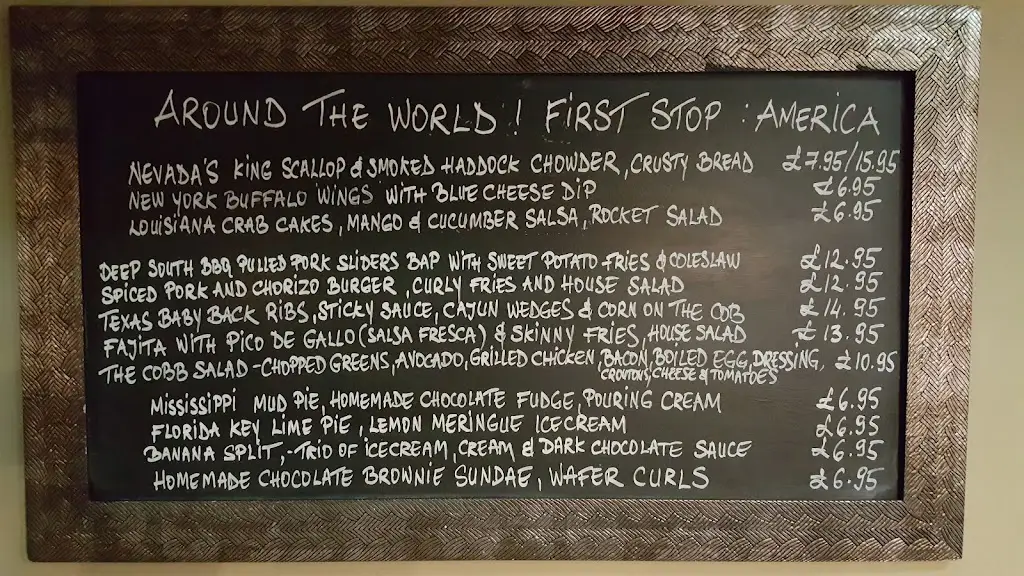 AROUND THE WORLD! FIRST STOP : AMERICA
NEVADA'S KING SCALLOP & SMOKED HADDOCK CHOWDER, CRUSTY BREAD £7.95/15.95
NEW YORK BUFFALO WINGS WITH BLUE CHEESE DIP £6.95
LOUISIANA CRAB CAKES, MANGO & CUCUMBER SALSA, ROCKET SALAD £6.95
DEEP SOUTH BBQ PULLED PORK SLIDERS BAP WITH SWEET POTATO FRIES & COLESLAW £12.95
SPICED PORK AND CHORIZO BURGER, CURLY FRIES AND HOUSE SALAD £12.95
TEXAS BABY BACK RIBS, STICKY SAUCE, CAJUN WEDGES & CORN ON THE COB £14.95
FAJITA WITH PICO DE GALLO (SALSA FRESCA) & SKINNY FRIES, HOUSE SALAD £13.95
THE COBB SALAD - CHOPPED GREENS, AVOCADO, GRILLED CHICKEN, BACON, BOILED EGG, DRESSING, £10.95
CROUTONS, CHEESE & TOMATOES
MISSISSIPPI MUD PIE, HOMEMADE CHOCOLATE FUDGE, POURING CREAM £6.95
FLORIDA KEY LIME PIE, LEMON MERINGUE ICECREAM £6.95
BANANA SPLIT, - TRIO OF ICECREAM, CREAM & DARK CHOCOLATE SAUCE £6.95
HOMEMADE CHOCOLATE BROWNIE SUNDAE, WAFER CURLS £6.95